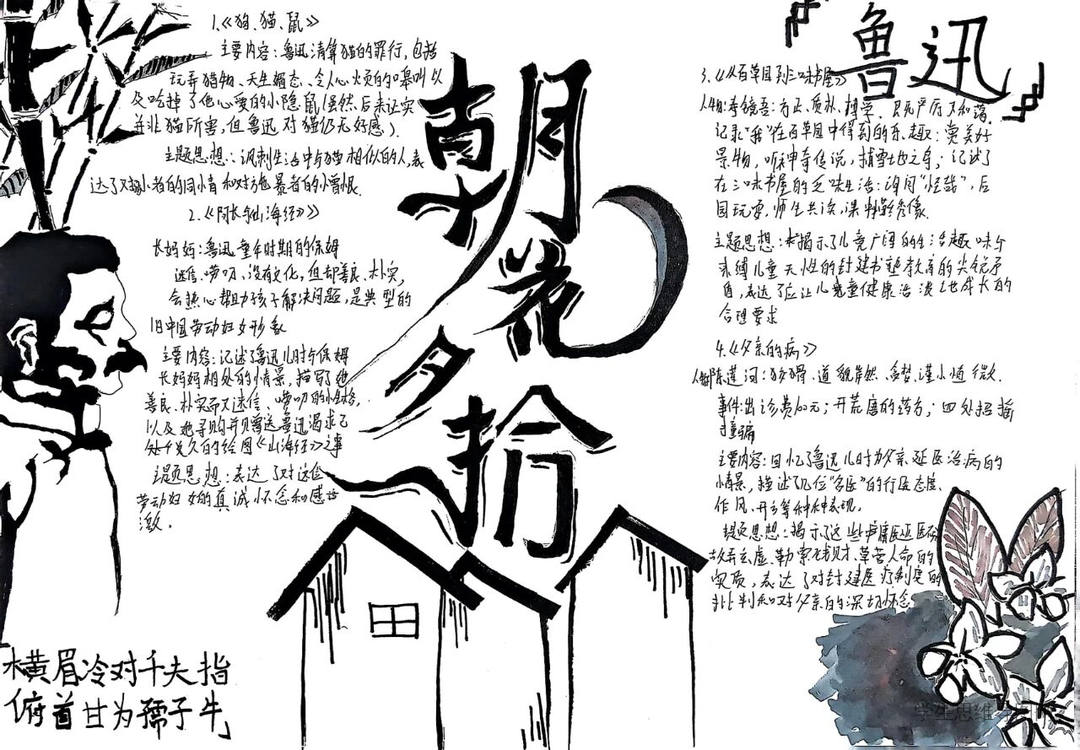 朝花夕拾
鲁迅
1.《狗、猫、鼠》
主要内容：鲁迅清算猫的罪行，包括
玩弄猎物、天生媚态、令人心烦的嗥叫以
及吃掉了他心爱的小隐鼠(虽然后来证实
并非猫所害，但鲁迅对猫仍无好感).
主题思想：讽刺生活中与猫相似的人，表
达了对弱小者的同情和对施暴者的憎恨.
2.《阿长与山海经》
长妈妈：鲁迅童年时期的保姆
迷信、唠叨、没有文化，但却善良、朴实，
会热心帮助孩子解决问题，是典型的
旧中国劳动妇女形象
主要内容：记述了鲁迅儿时与保姆
长妈妈相处的情景，描写了她
善良、朴实而又迷信、唠叨的
以及她寻购并赠送鲁迅渴求已
久的绘图《山海经》之事
主题思想：表达了对这位
劳动妇女的真诚怀念和感
激.
3.《从百草园到三味书屋》
寿镜吾：方正、质朴、博学、
记录"我"在百草园中得到的乐趣：赏美好
景物，听神奇传说，捕雪地之鸟；记述了
在三味书屋的乏味生活：询问"怪哉"，后
园玩耍，师生共读，课
主题思想：揭示了儿童广阔的生活趣味与
束缚儿童天性的封建书塾教育的尖锐矛
盾，表达了应让儿童健康活泼地成长的
合理要求
4.《父亲的病》
陈莲河：道貌岸然、
事件：出诊费100元；开荒唐的药方；四处招摇
撞骗
主要内容：回忆了鲁迅儿时为父亲延医治病的
情景，描述了几位"名医"的行医态度、
作风、开方等种种表现.
主题思想：揭示了这些庸医
故弄玄虚、勒索钱财、草菅人命的
实质，表达了对封建医疗制度的
批判和对父亲的深切怀念
横眉冷对千夫指
俯首甘为孺子牛
学生思维